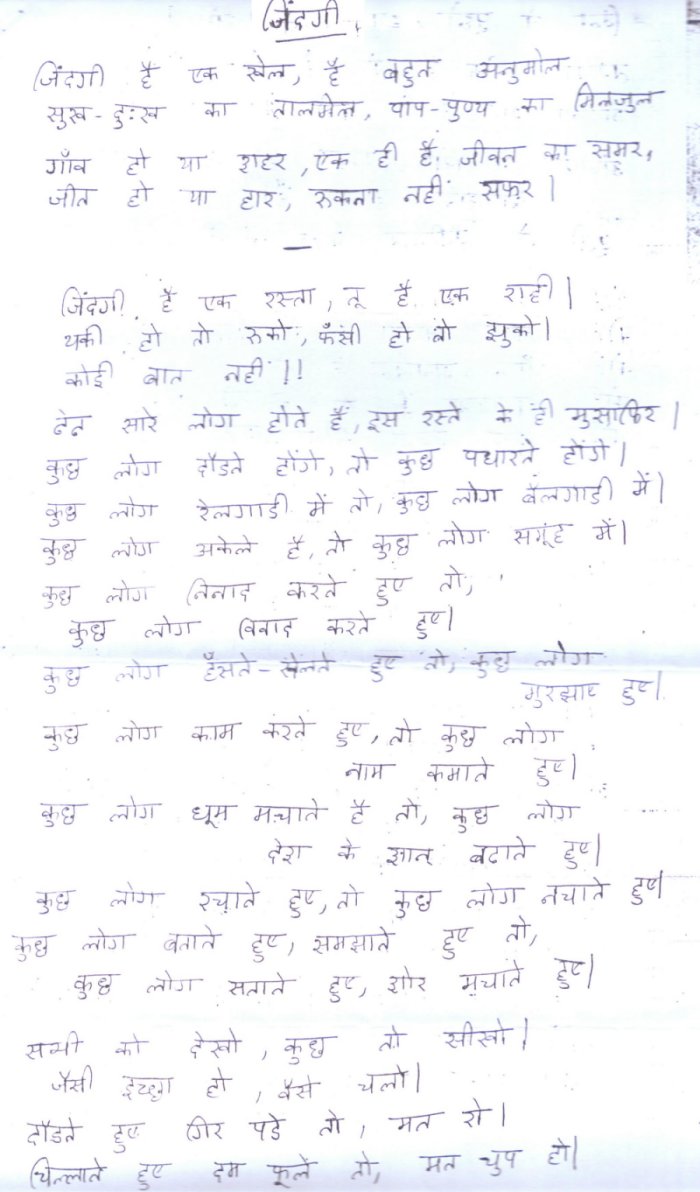 जिंदगी
जिंदगी है एक खेल, है बहुत अनुमोल
सुख-दुःख का तालमेल, पाप-पुण्य का मिलजुल
गाँव हो या शहर, एक ही है जीवन का समर,
जीत हो या हार, रुकता नहीं सफर।
—
जिंदगी है एक रस्ता, तू है एक राही।
थकी हो तो रुको, फँसी हो तो झुको।
कोई बात नहीं!!
ढेढ सारे लोग होते है, इस रस्ते के ही मुसाफिर।
कुछ लोग दौडते होंगे, तो कुछ पधारते होंगे।
कुछ लोग रेलगाडी में तो, कुछ लोग बैलगाडी में।
कुछ लोग अकेले है, तो कुछ लोग समूह में।
कुछ लोग निनाद करते हुए तो,
कुछ लोग विवाद करते हुए।
कुछ लोग हँसते-खेलते हुए तो, कुछ लोग
मुरझाए हुए।
कुछ लोग काम करते हुए, तो कुछ लोग
नाम कमाते हुए।
कुछ लोग धूम मचाते है तो, कुछ लोग
देश के शान बढाते हुए।
कुछ लोग रचाते हुए, तो कुछ लोग नचाते हुए।
कुछ लोग बताते हुए, समझाते हुए तो,
कुछ लोग सताते हुए, शोर मचाते हुए।
सभी को देखो, कुछ तो सीखो।
जैसी इच्छा हो, वैसे चलो।
दौडते हुए गिर पडे तो, मत रो।
चिल्लाते हुए दम फूले तो, मत चुप हो।